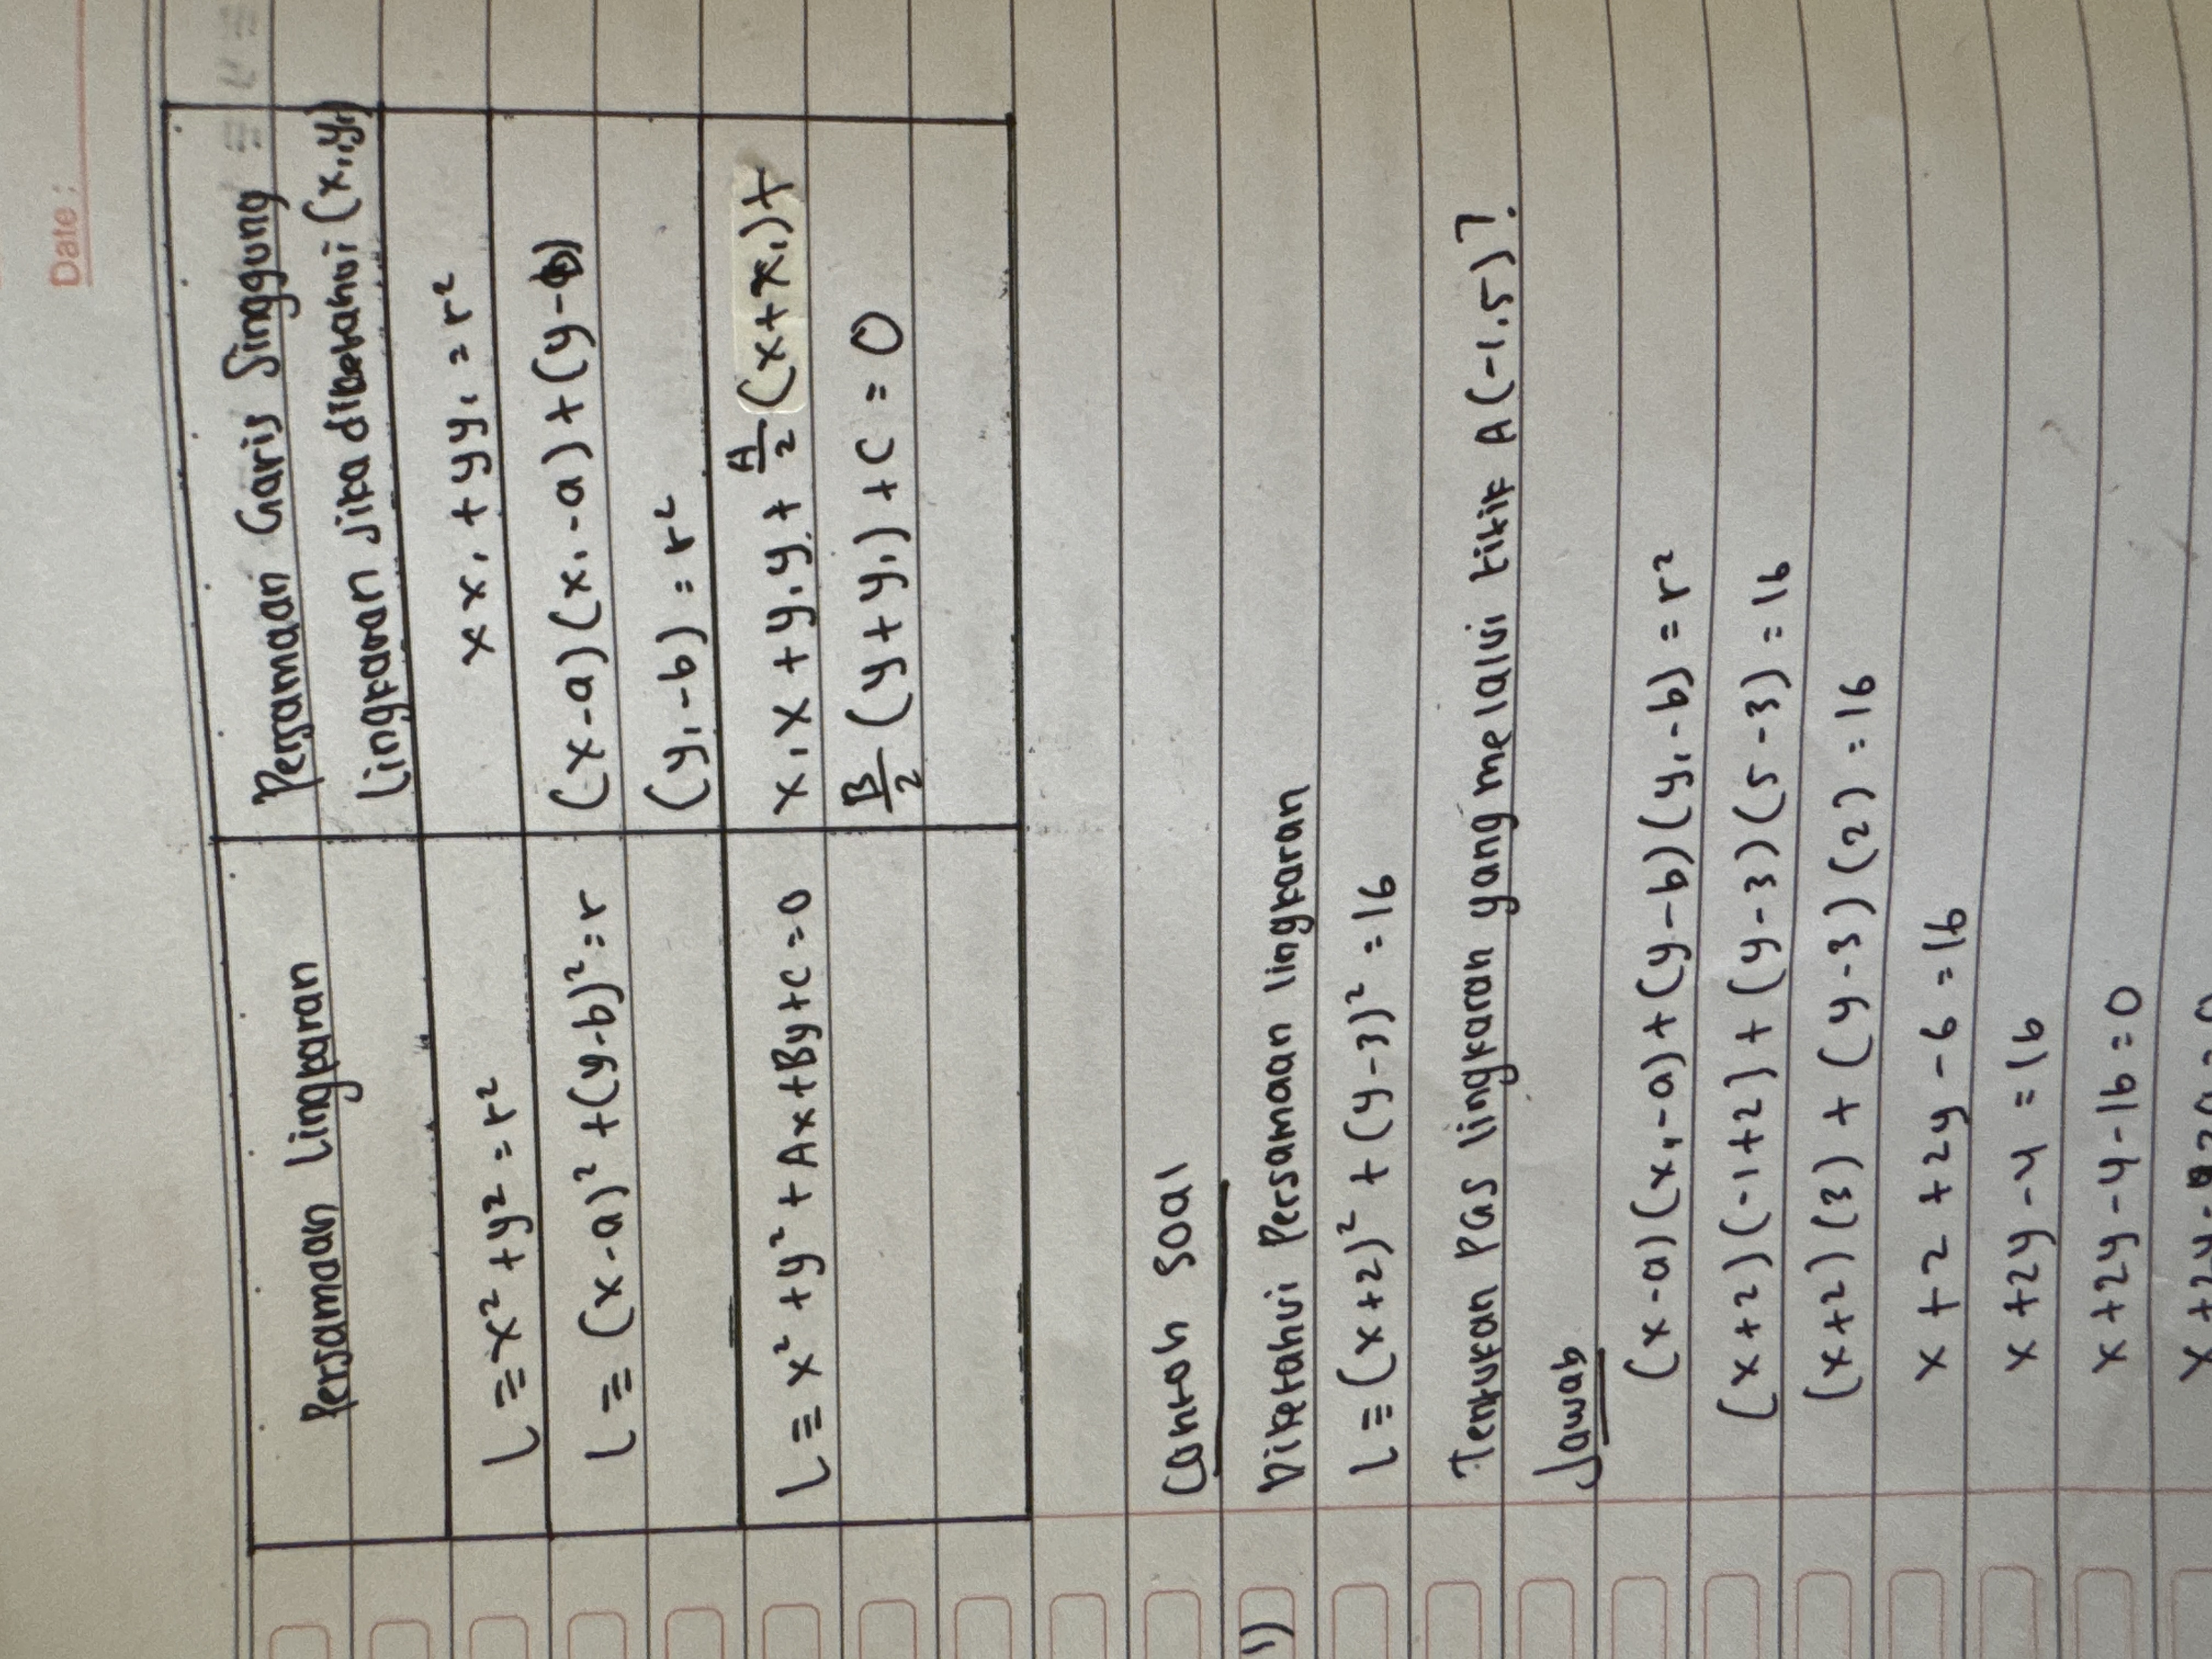 Date :
Persamaan Lingkaran
Persamaan Garis Singgung
lingkaran jika diketahui (x₁,y₁)
L ≡ x² + y² = r²
xx₁ + yy₁ = r²
L ≡ (x-a)² + (y-b)² = r
(x-a)(x₁-a) + (y-b)
(y₁-b) = r²
L ≡ x² + y² + Ax + By + C = 0
x₁x + y₁y + A/2 (x+x₁) +
B/2 (y+y₁) + C = 0
Contoh Soal
1) Diketahui Persamaan lingkaran
L ≡ (x+2)² + (y-3)² = 16
Tentukan PGS lingkaran yang melalui titik A(-1,5)?
Jawab
(x-a)(x₁-a) + (y-b)(y₁-b) = r²
(x+2)(-1+2) + (y-3)(5-3) = 16
(x+2)(3) + (y-3)(2) = 16
x + 2 + 2y - 6 = 16
x + 2y - 4 = 16
x + 2y - 4 - 16 = 0